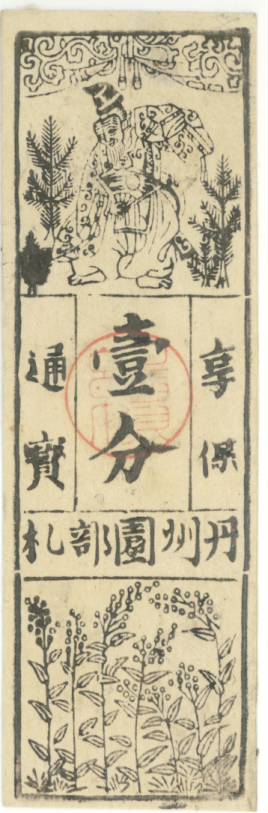 享保
壹分
通寳
丹州園部札